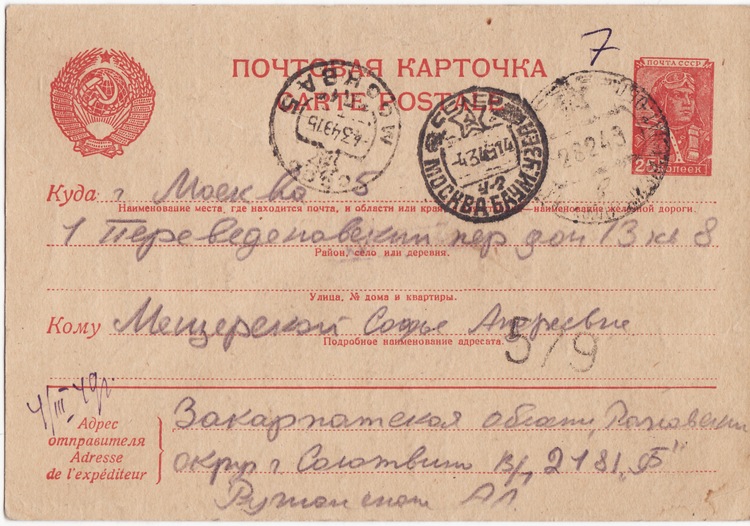 7
ПОЧТА СССР
ПОЧТОВАЯ КАРТОЧКА
CARTE POSTALE
25 КОПЕЕК
MOSCOU
4.3.49 15
4.3.49 14
МОСКВА
28 2 49
Куда г Москва 5
Наименование места, где находится почта, и области или края наименование железной дороги.
1 Переведеновский пер дом 13 кв 8
Район, село или деревня.
Улица, № дома и квартиры.
Кому Мещерской Софье Андреевне
Подробное наименование адресата.
5/9
4/III 49г.
Адрес
отправителя
Adresse
de l'expéditeur
Закарпатская область, Раховский
округ г Солотвино в/ч 2181 „Б"
А.Л.